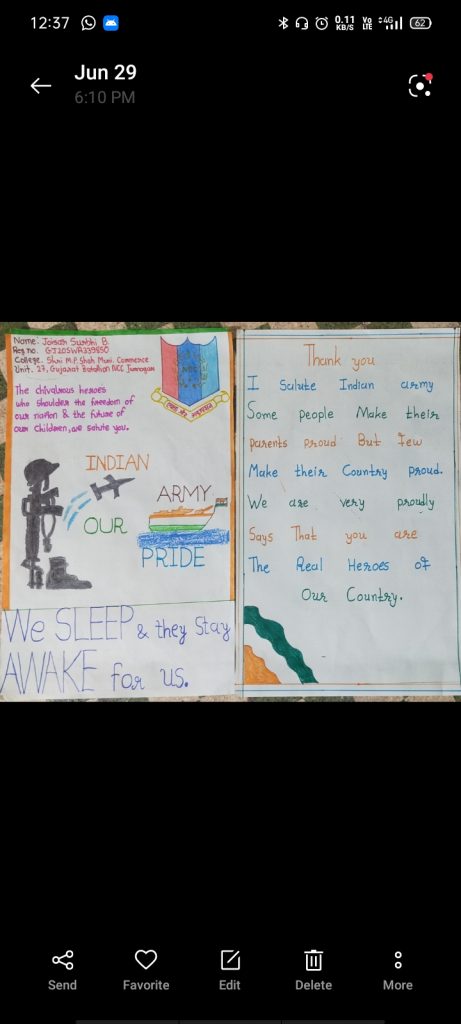 12:37
0.11
KB/S
Vo
LTE
4G
62
Jun 29
6:10 PM
Name: Joisah Surbhi B.
Reg no. GJ20SWA339850
College. Shri M.P. Shah Muni. Commerce
Unit. 27, Gujarat Batalion NCC Jamnagar
The chivalrous heroes
who shoulder the freedom of
our nation & the future of
our Children, we salute you.
NCC
एकता और अनुशासन
INDIAN
ARMY
OUR
PRIDE
We SLEEP & they Stay
AWAKE for us.
Thank you
I Salute Indian army
Some people Make their
parents proud But Few
Make their Country proud.
We are very proudly
Says That you are
The Real Heroes of
Our Country.
Send
Favorite
Edit
Delete
More